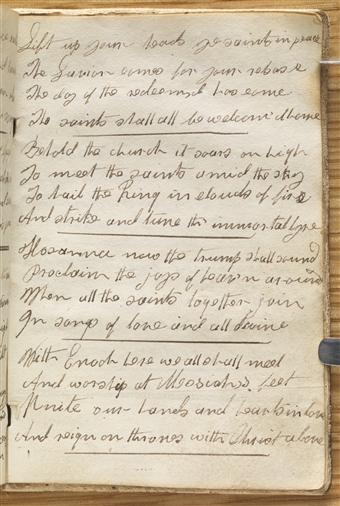 Lift up your heads ye saints in peace
The Savior comes for your release
The day of the redeemed has come
The saints shall all be welcom'd home
Behold the church it soars on high
To meet the saints amid the sky
To hail the King in clouds of fire
And strike and tune th immortal lyre
Hosanna now the trump shall sound
Proclaim the joys of heavn around
When all the saints together join
In songs of love and all divine
With Enoch here we all shall meet
And worship at Messiahs feet
Unite our hands and hearts in love
And reign on thrones with Christ above